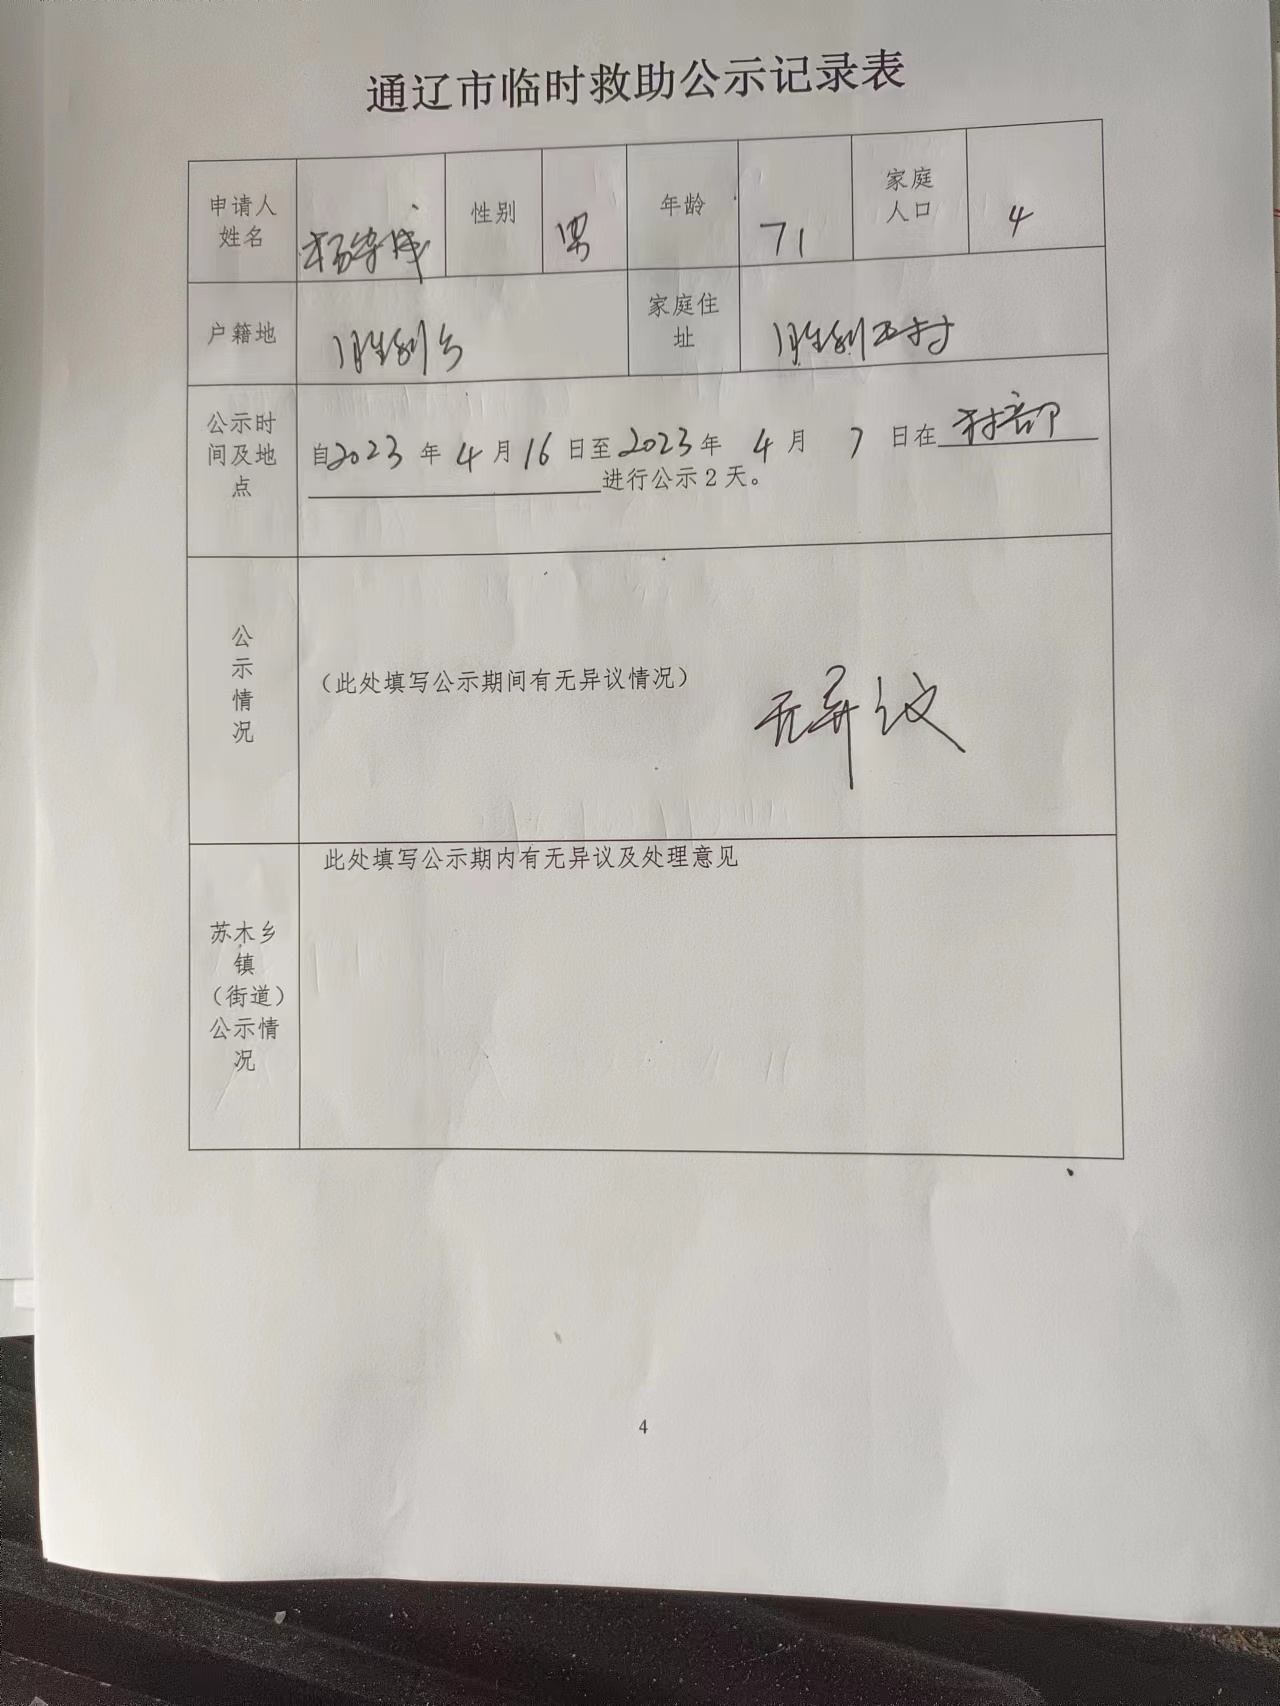 通辽市临时救助公示记录表
申请人
姓名
杨
性别
男
年龄
71
家庭
人口
4
户籍地
胜利乡
家庭住
址
胜利五村
公示时
间及地
点
自2023年4月16日至2023年4月7日在村部
进行公示2天。
公
示
情
况
(此处填写公示期间有无异议情况)
无异议
苏木乡
镇
(街道)
公示情
况
此处填写公示期内有无异议及处理意见
4